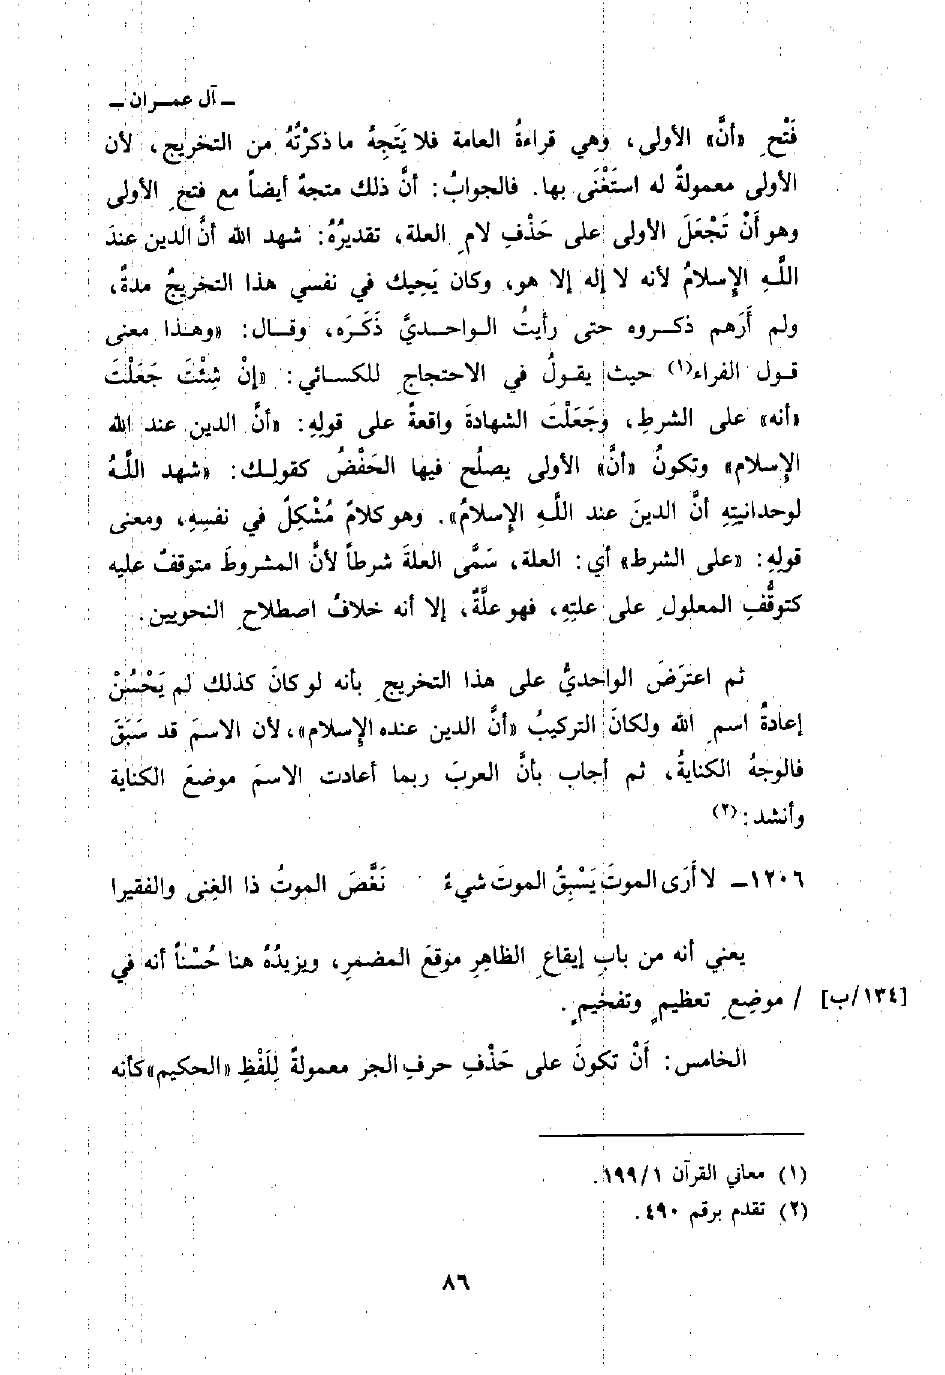 ـ آل عمـران ـ
فَتْحِ «أنَّ» الأولى، وهي قراءةُ العامة فلا يَتَّجِهُ ما ذكرْتُهُ من التخريج، لأن
الأولى معمولةٌ له استَغْنَى بها. فالجوابُ: أنَّ ذلك متجهٌ أيضاً مع فتحِ الأولى
وهو أَنْ تَجْعَلَ الأولى على حَذْفِ لامِ العلة، تقديرُهُ: شهد الله أنَّ الدين عندَ
اللَّهِ الإِسلامُ لأنه لا إله إلا هو، وكان يَحِيك في نفسي هذا التخريجُ مدةً،
ولم أَرَهم ذكـروه حتى رأيتُ الـواحـديَّ ذَكَـرَه، وقـال: «وهـذا معنى
قـول الفراء(١) حيث يقـولُ في الاحتجاجِ للكسائي: «إنْ شِئْتَ جَعَلْتَ
«أنه» على الشرطِ، وجَعَلْتَ الشهادةَ واقعةً على قولِهِ: «أنَّ الدين عند الله
الإِسلام» وتكونُ «أنَّ» الأولى يصلُح فيها الخَفْضُ كقولـك: «شهد اللَّـهُ
لوحدانيتِهِ أنَّ الدينَ عند اللَّهِ الإِسلامُ». وهو كلامٌ مُشْكِلٌ في نفسِهِ، ومعنى
قولِهِ: «على الشرط» أي: العلة، سَمَّى العلةَ شرطاً لأنَّ المشروطَ متوقفٌ عليه
كتوقُّفِ المعلولِ على علتِهِ، فهو علَّةٌ، إلا أنه خلافُ اصطلاحِ النحويين.
ثم اعترَضَ الواحديُّ على هذا التخريجِ بأنه لو كانَ كذلك لم يَحْسُنْ
إعادةُ اسمِ الله ولكانَ التركيبُ «أنَّ الدين عنده الإِسلام»، لأن الاسمَ قد سَبَقَ
فالوجهُ الكنايةُ، ثم أجاب بأنَّ العربَ ربما أعادت الاسمَ موضعَ الكناية
وأنشد:(٢)
١٢٠٦ـ لا أَرَى الموتَ يَسْبِقُ الموتَ شيءٌ نَغَّصَ الموتُ ذا الغِنى والفقيرا
يعني أنه من بابِ إيقاعِ الظاهرِ موقعَ المضمرِ، ويزيدُهُ هنا حُسْناً أنه في
[١٣٤/ب] / موضعِ تعظيمٍ وتفخيمٍ.
الخامس: أَنْ تكونَ على حَذْفِ حرفِ الجر معمولةً لِلَفْظِ «الحكيم» كأنه
(١) معاني القرآن ١/١٩٩.
(٢) تقدم برقم ٤٩٠.
٨٦